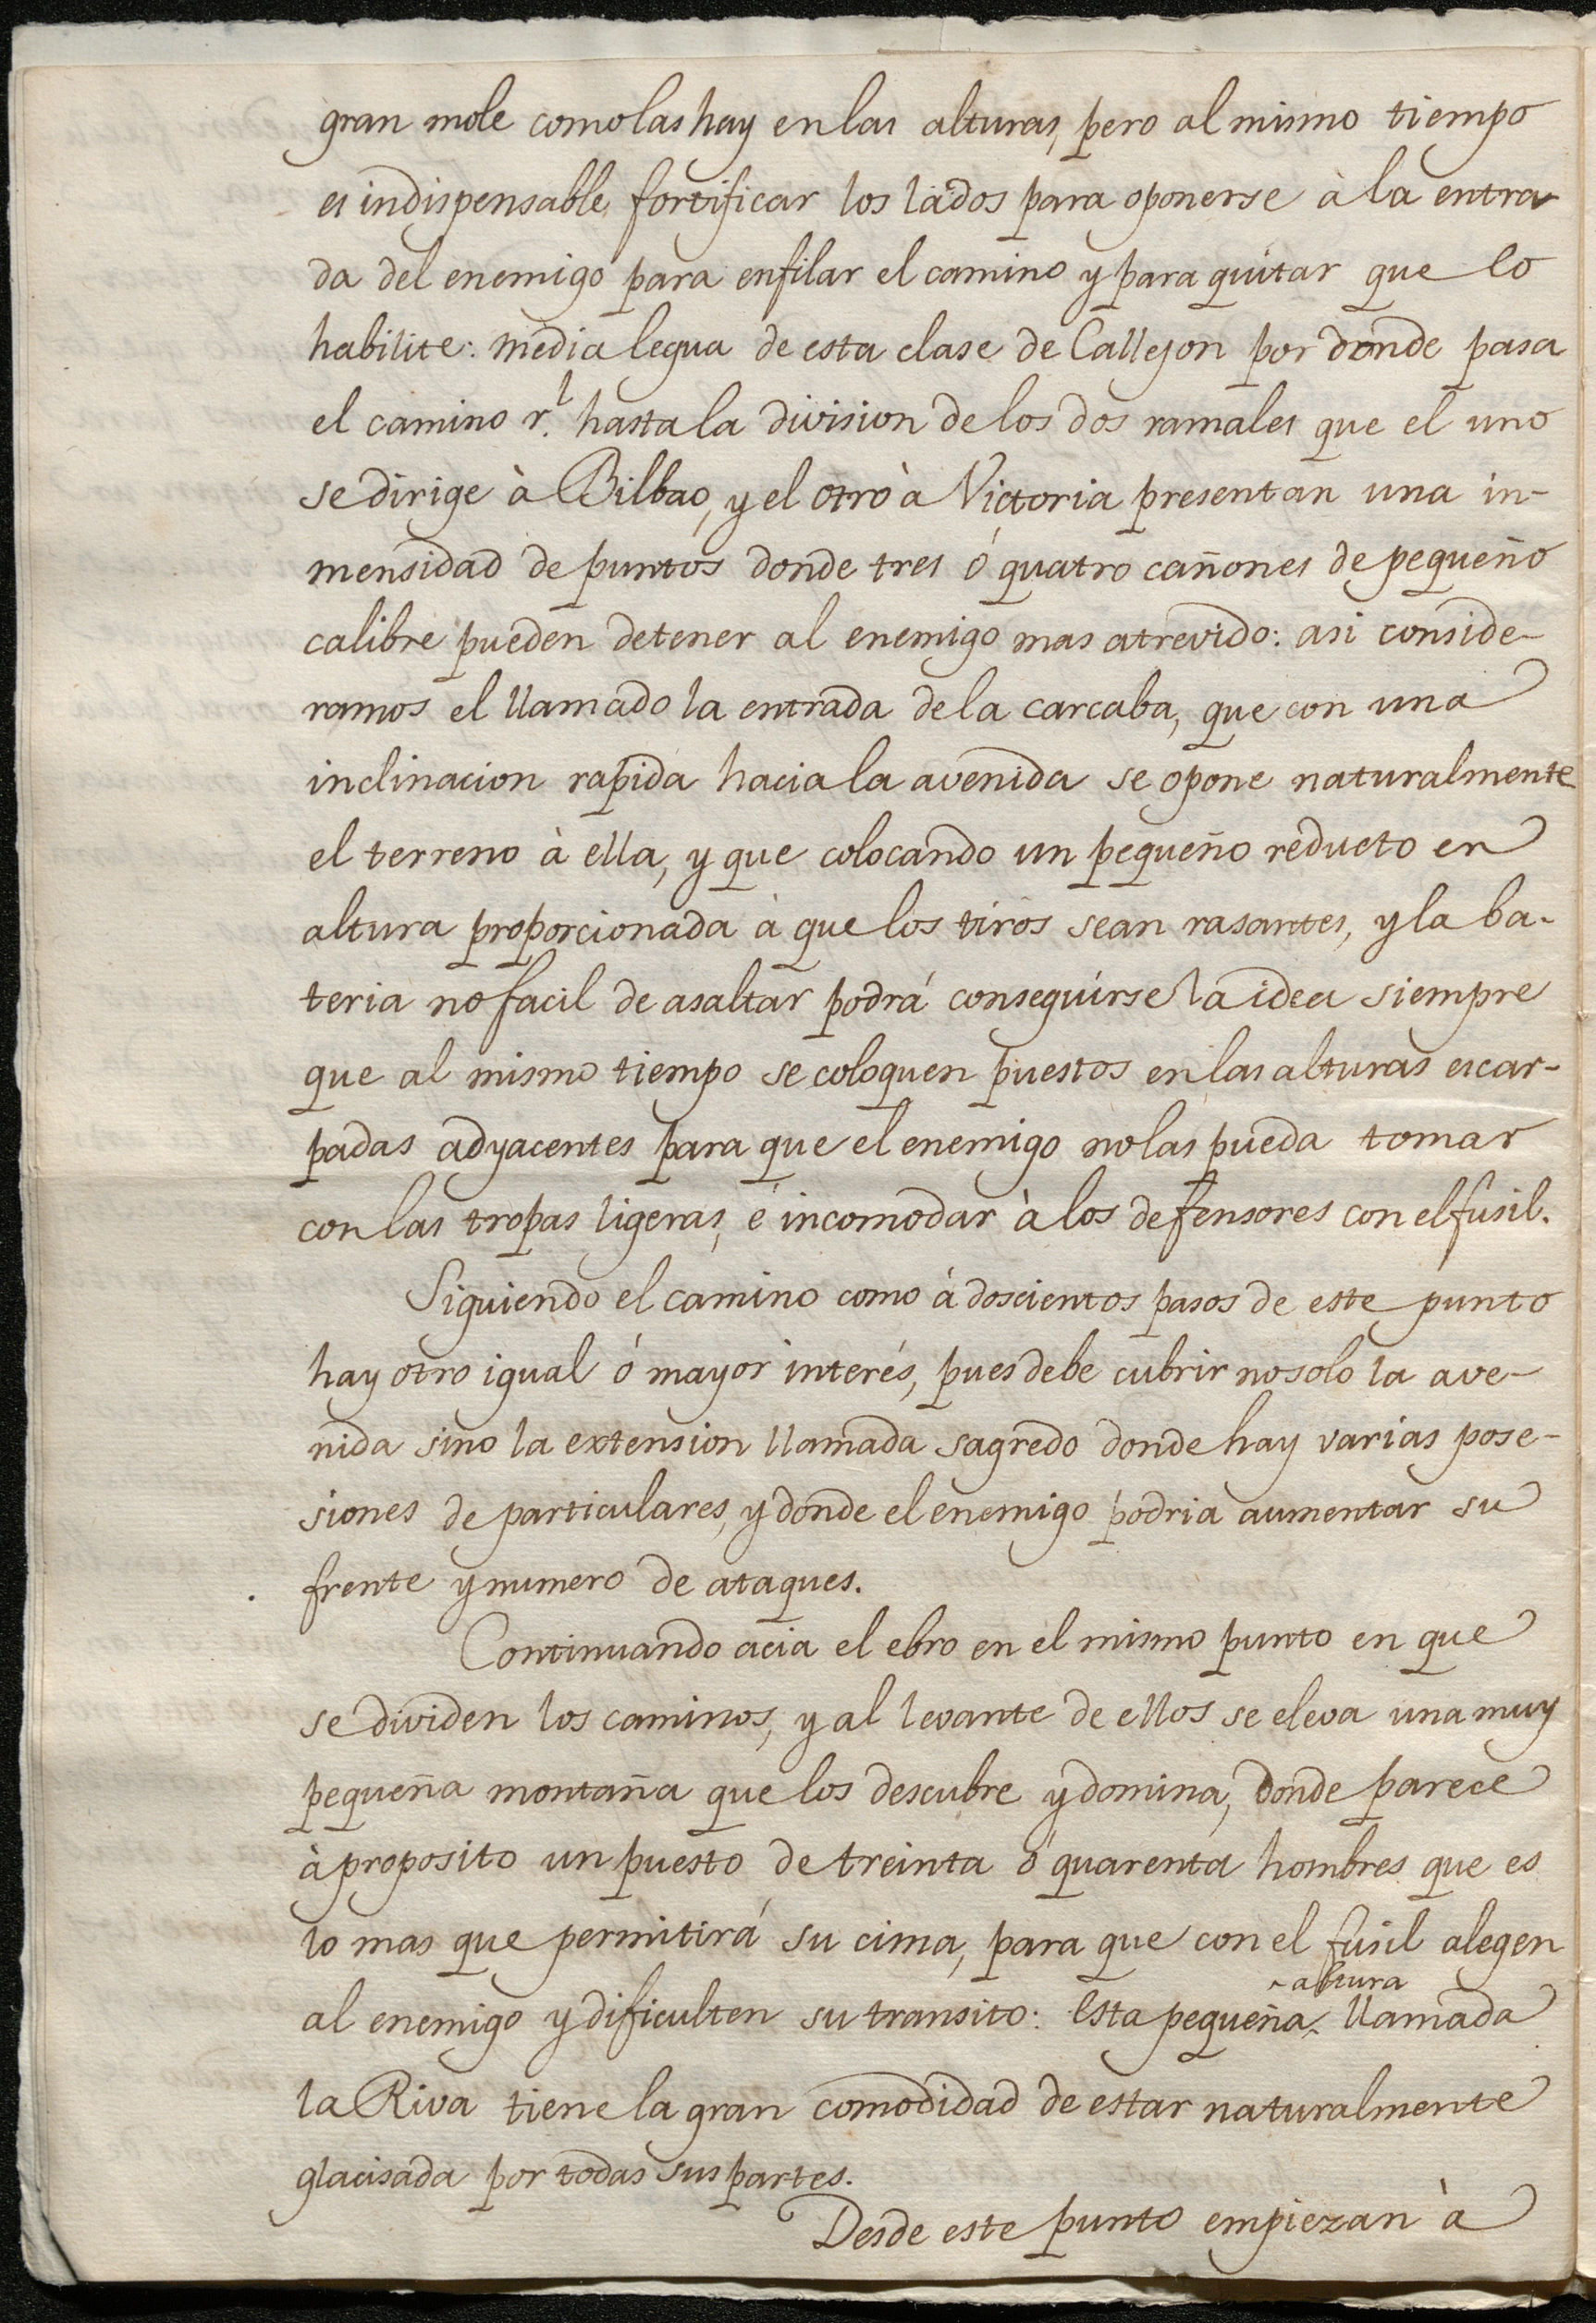 gran mole como las hay en las alturas, pero al mismo tiempo
es indispensable fortificar los lados para oponerse à la entra
da del enemigo para enfilar el camino y para quitar que lo
habilite: media legua de esta clase de Callejon por donde pasa
el camino r.l hasta la division de los dos ramales que el uno
se dirige à Bilbao, y el otro à Victoria presentan una in-
mensidad de puntos donde tres ó quatro cañones de pequeño
calibre pueden detener al enemigo mas atrevido: asi conside-
ramos el llamado la entrada de la carcaba, que con una
inclinacion rapida hacia la avenida se opone naturalmente
el terreno à ella, y que colocando un pequeño reducto en
altura proporcionada à que los tiros sean rasantes, y la ba-
teria no facil de asaltar podrá conseguirse la idea siempre
que al mismo tiempo se coloquen puestos en las alturas escar-
padas adyacentes para que el enemigo no las pueda tomar
con las tropas ligeras, é incomodar à los defensores con el fusil.
Siguiendo el camino como à doscientos pasos de este punto
hay otro igual ó mayor interés, pues debe cubrir no solo la ave-
nida sino la extension llamada sagredo donde hay varias pose-
siones de particulares, y donde el enemigo podria aumentar su
frente y numero de ataques.
Continuando acia el ebro en el mismo punto en que
se dividen los caminos, y al levante de ellos se eleva una muy
pequeña montaña que los descubre y domina, donde parece
à proposito un puesto de treinta ó quarenta hombres que es
lo mas que permitirá su cima, para que con el fusil alegen
al enemigo y dificulten su transito: Esta pequeña altura llamada
la Riva tiene la gran comodidad de estar naturalmente
glacisada por todas sus partes.
Desde este punto empiezan à